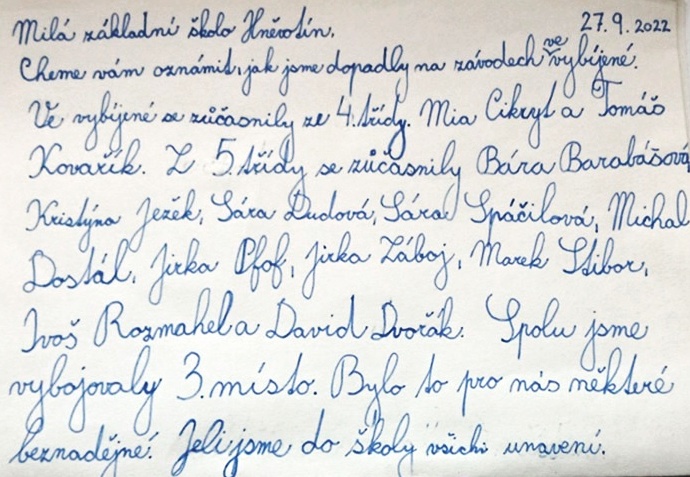 Milá základní školo Hněvotín. 27.9.2022
Cheme vám oznámit, jak jsme dopadly na závodech ve vybíjené.
Ve vybíjené se zůčasnily ze 4. třídy. Mia Cikryt a Tomáš
Kovařík. Z 5. třídy se zůčasnily Bára Barabášová,
Kristýna Ježek, Sára Dudová, Sára Spáčilová, Michal
Dostál, Jirka Pfof, Jirka Záboj, Marek Stibor,
Ivoš Rozmahel a David Dvořák. Spolu jsme
vybojovaly 3. místo. Bylo to pro nás některé
beznadějné! Jeli jsme do školy všichi unavení.